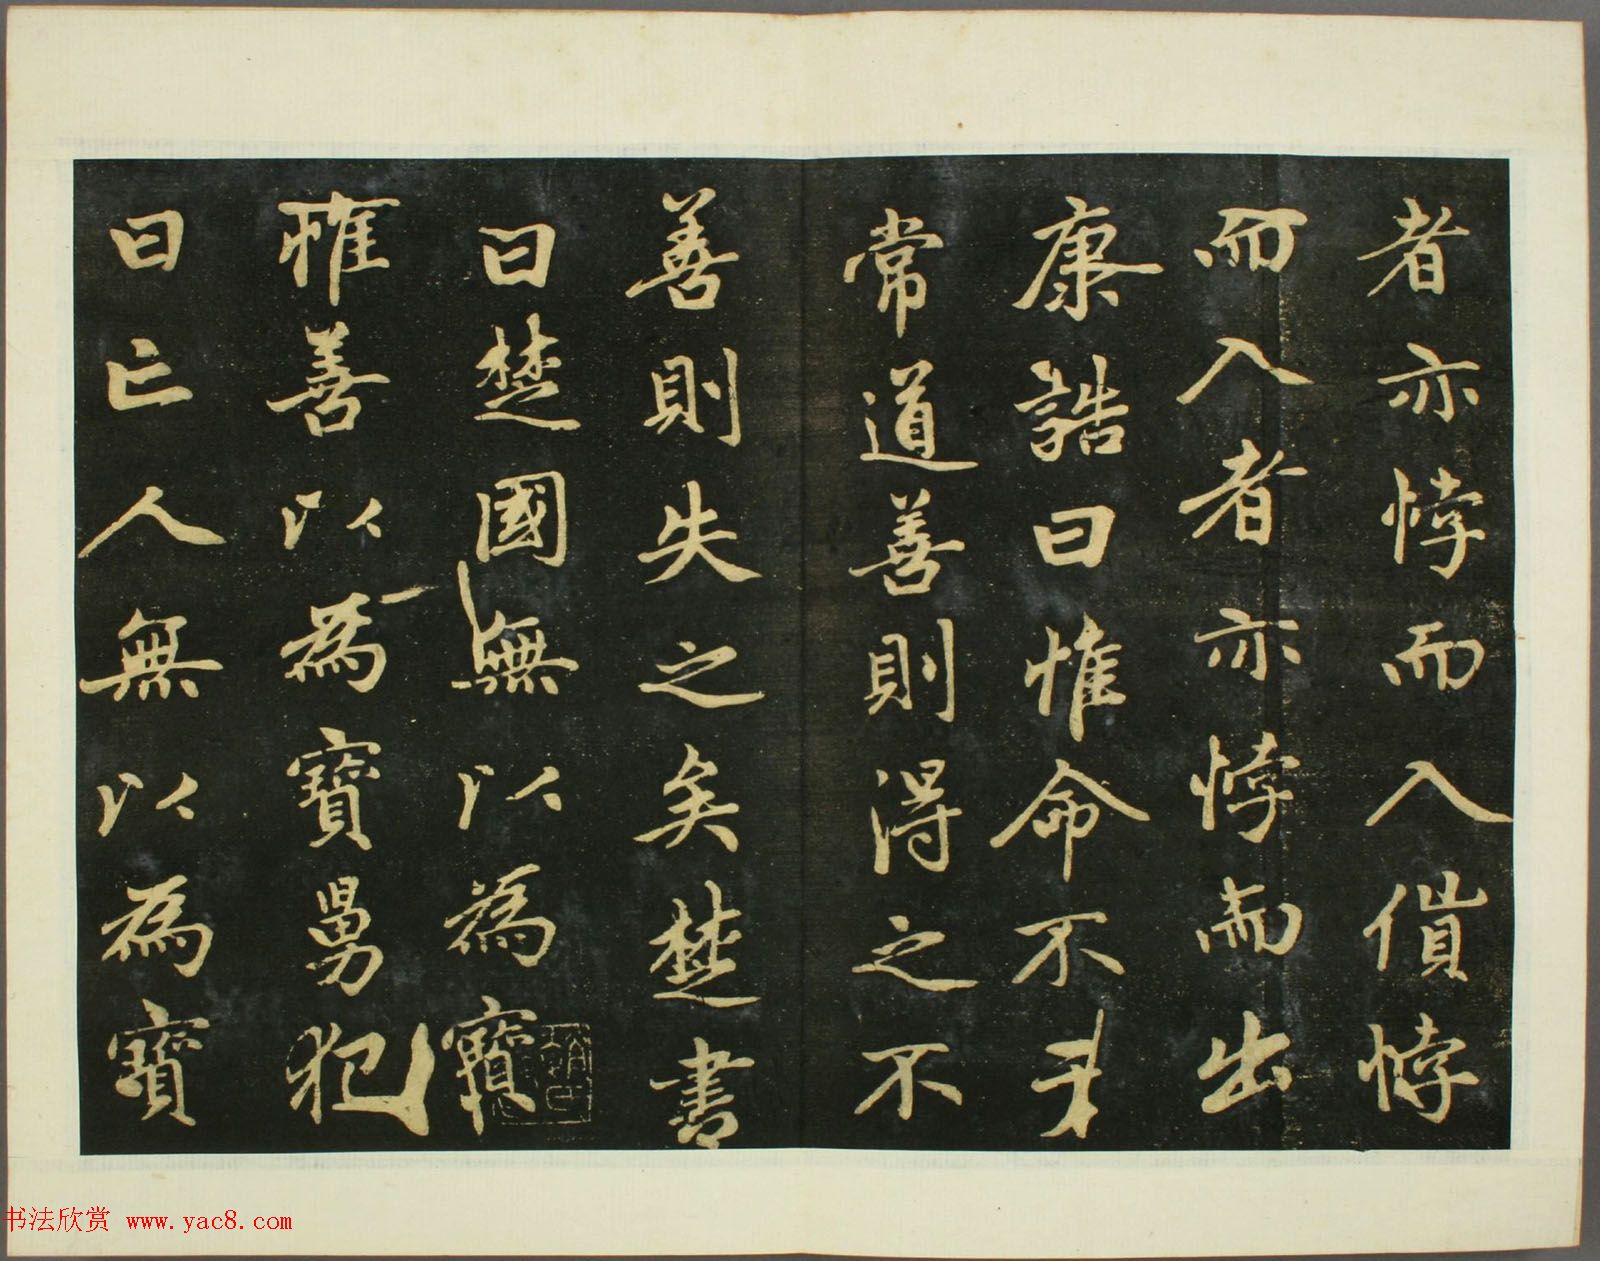 者亦悖而入貨悖
而入者亦悖而出
康誥曰惟命不于
常道善則得之不
善則失之矣楚書
曰楚國無以為寶
惟善以為寶舅犯
曰亡人無以為寶
书法欣赏 www.yac8.com